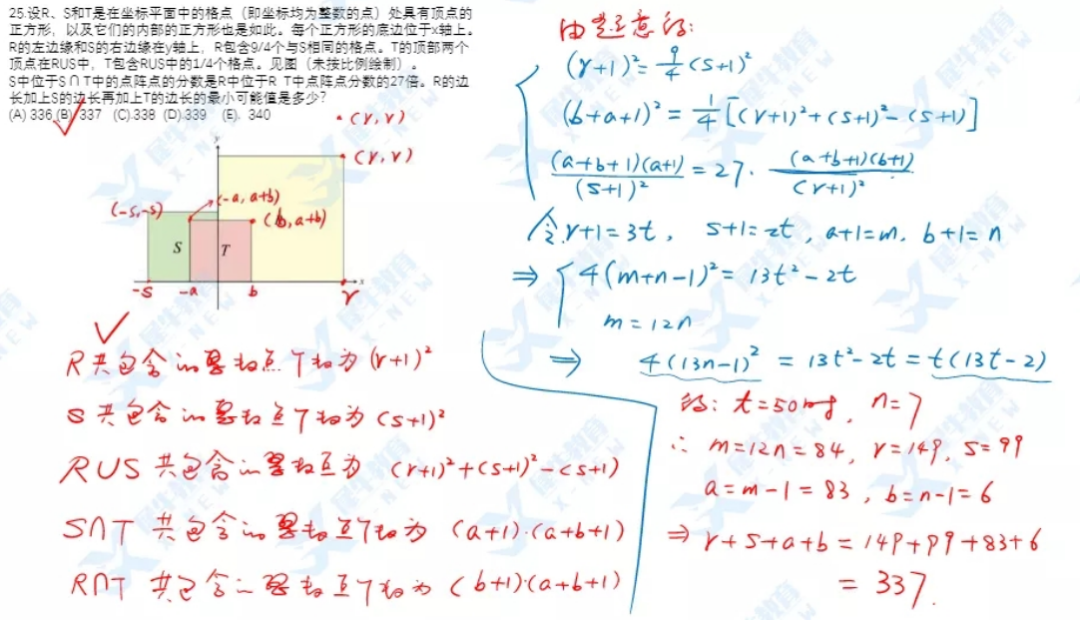 25.设R、S和T是在坐标平面中的格点（即坐标均为整数的点）处具有顶点的
正方形，以及它们的内部的正方形也是如此。每个正方形的底边位于x轴上。
R的左边缘和S的右边缘在y轴上，R包含9/4个与S相同的格点。T的顶部两个
顶点在RUS中，T包含RUS中的1/4个格点。见图（未按比例绘制）。
S中位于S∩T中的点阵点的分数是R中位于R T中点阵点分数的27倍。R的边
长加上S的边长再加上T的边长的最小可能值是多少?
(A) 336 (B) 337 (C).338 (D).339 (E). 340
(r, r)
y
(r, r)
(-a, a+b)
(-s,-s)
(b, a+b)
S
T
x
-s
-a
b
r
R共包含的整格点个数为 (r+1)²
S共包含的整格点个数为 (s+1)²
RUS 共包含的整格点为 (r+1)²+(s+1)²-(s+1)
S∩T 共包含的整格点个数为 (a+1)·(a+b+1)
R∩T 共包含的整格点个数为 (b+1)·(a+b+1)
由题意的:
(r+1)²=9/4(s+1)²
(b+a+1)²=1/4[(r+1)²+(s+1)²-(s+1)]
(a+b+1)(a+1)/(s+1)²=27·(a+b+1)(b+1)/(r+1)²
令r+1=3t, s+1=2t, a+1=m, b+1=n
⇒ 4(m+n-1)²=13t²-2t
m=12n
⇒ 4(13n-1)²=13t²-2t=t(13t-2)
的: t=50时, n=7
∴ m=12n=84, r=149, s=99
a=m-1=83, b=n-1=6
⇒ r+s+a+b=149+99+83+6
=337.
犀牛教育
X-NEW